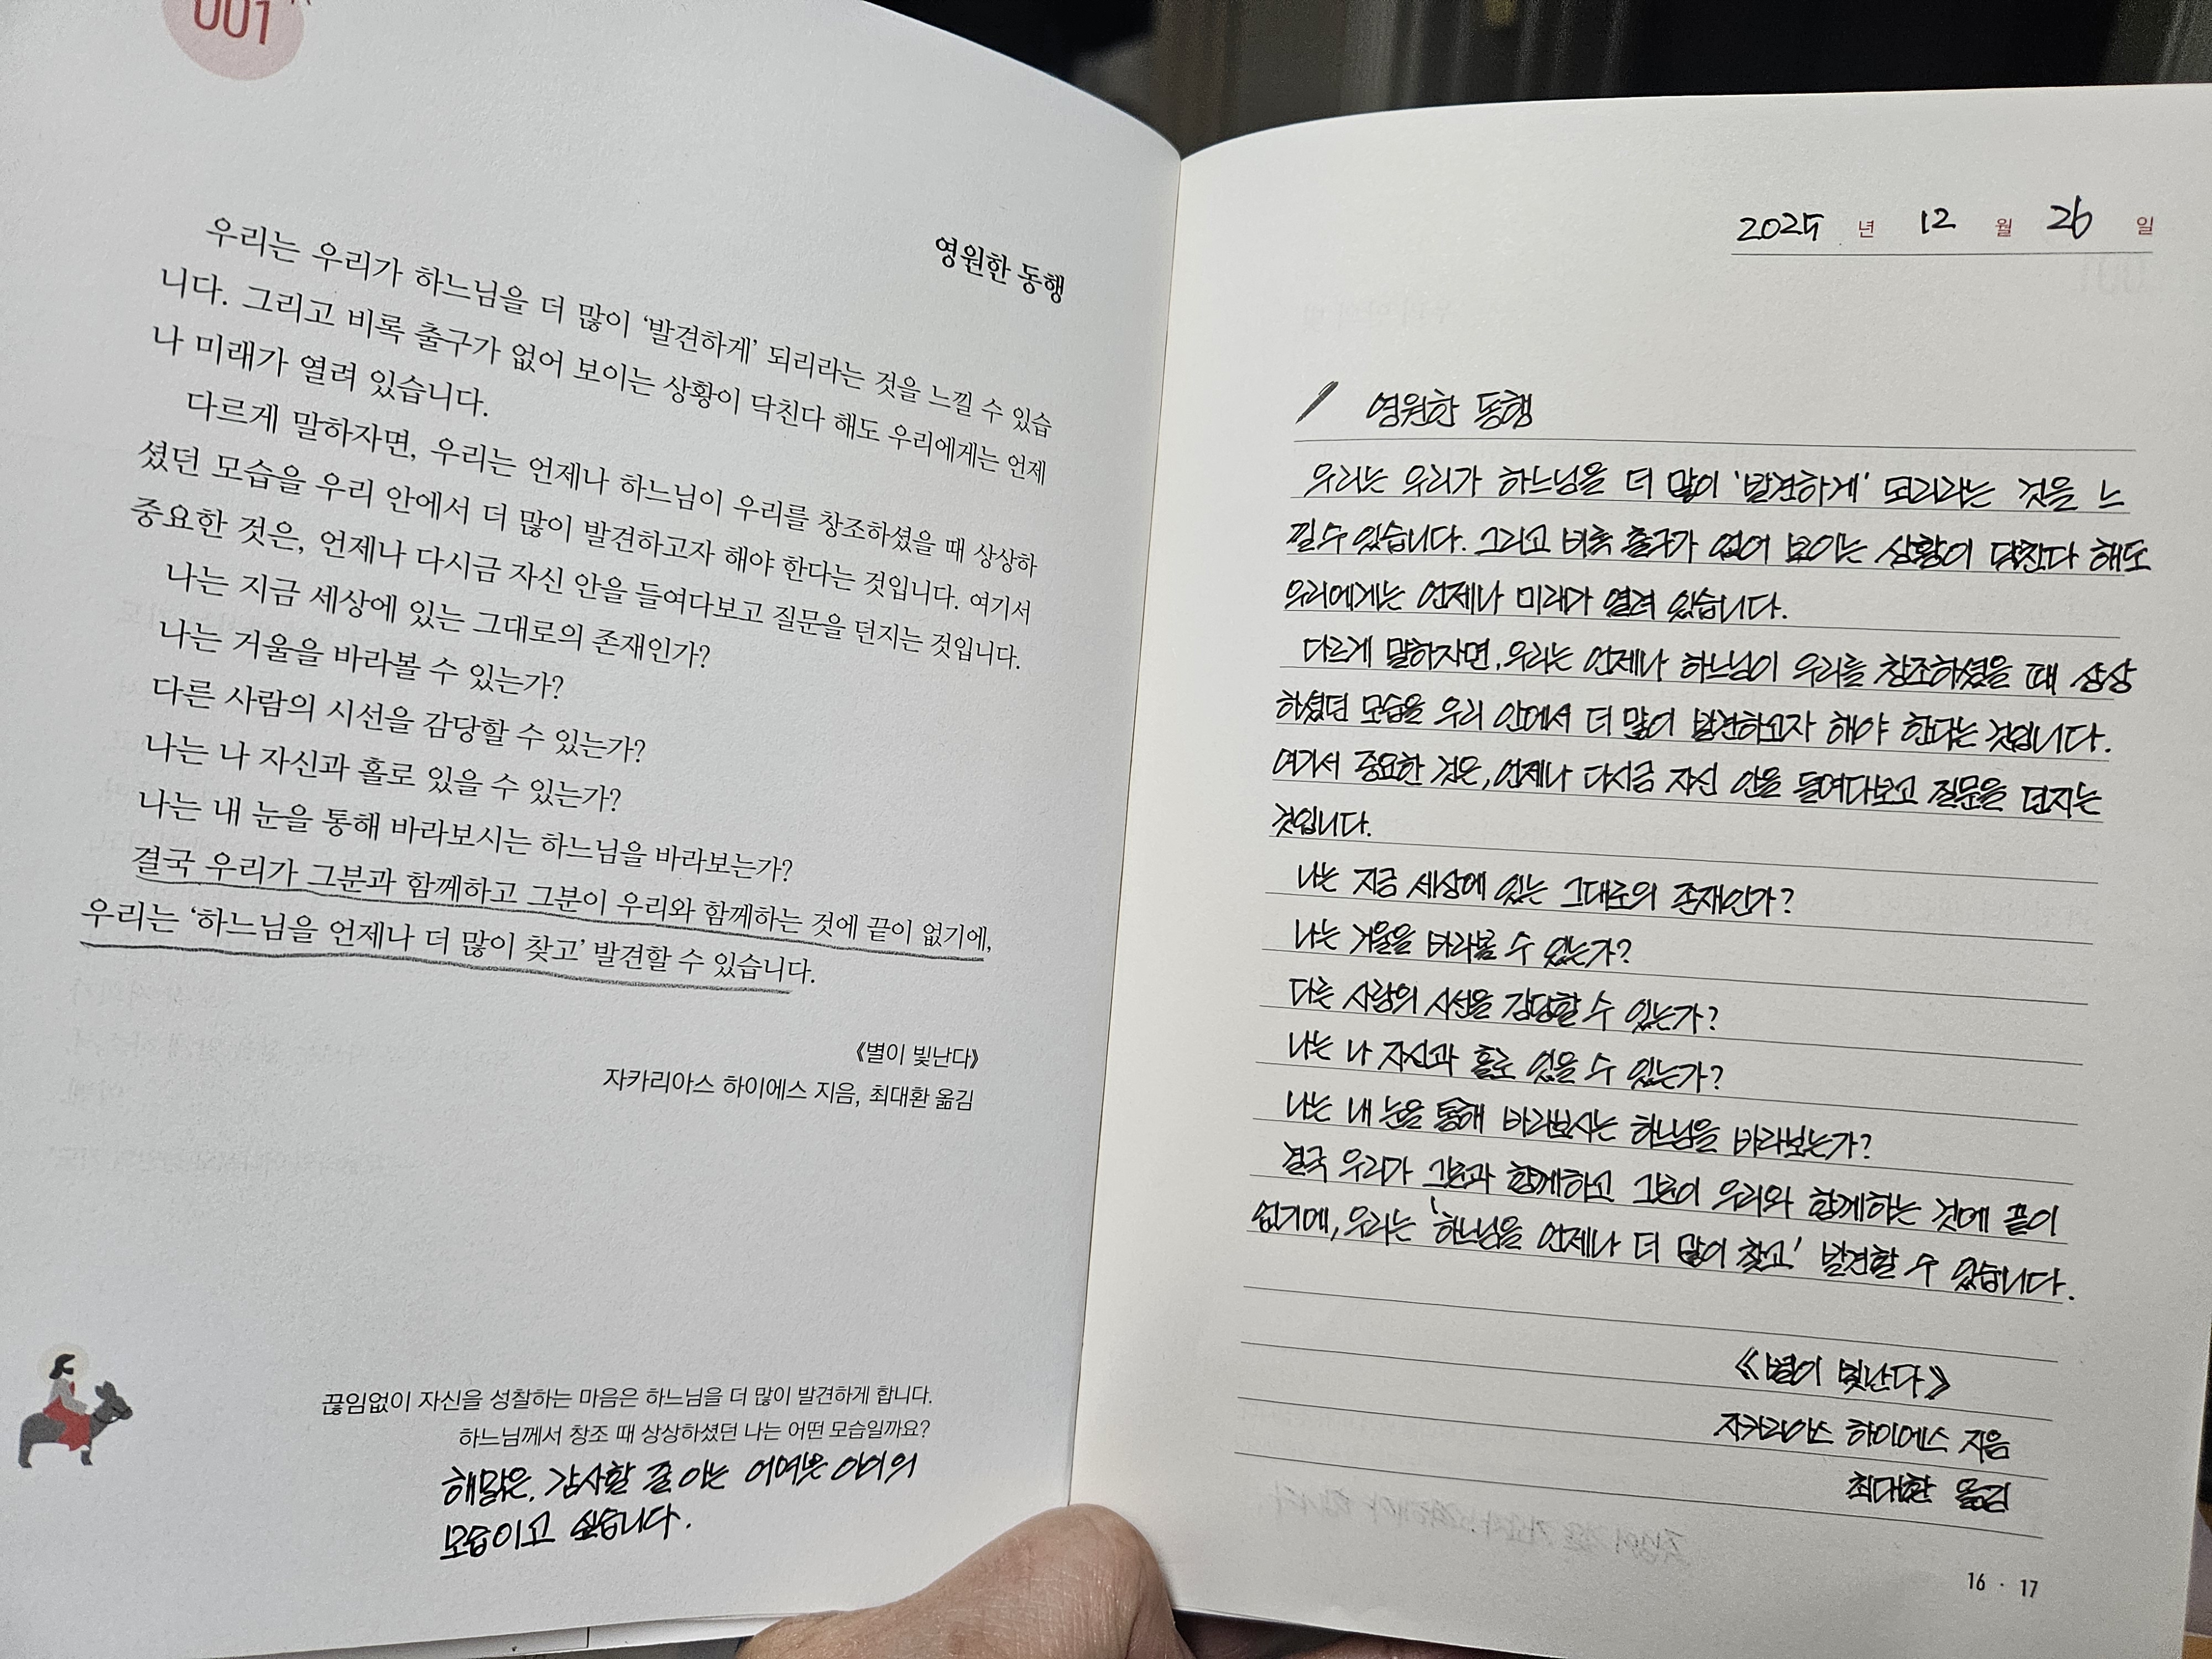 001
영원한 동행
우리는 우리가 하느님을 더 많이 ‘발견하게’ 되리라는 것을 느낄 수 있습
니다. 그리고 비록 출구가 없어 보이는 상황이 닥친다 해도 우리에게는 언제
나 미래가 열려 있습니다.
다르게 말하자면, 우리는 언제나 하느님이 우리를 창조하셨을 때 상상하
셨던 모습을 우리 안에서 더 많이 발견하고자 해야 한다는 것입니다. 여기서
중요한 것은, 언제나 다시금 자신 안을 들여다보고 질문을 던지는 것입니다.
나는 지금 세상에 있는 그대로의 존재인가?
나는 거울을 바라볼 수 있는가?
다른 사람의 시선을 감당할 수 있는가?
나는 나 자신과 홀로 있을 수 있는가?
나는 내 눈을 통해 바라보시는 하느님을 바라보는가?
결국 우리가 그분과 함께하고 그분이 우리와 함께하는 것에 끝이 없기에,
우리는 ‘하느님을 언제나 더 많이 찾고’ 발견할 수 있습니다.
《별이 빛난다》
자카리아스 하이에스 지음, 최대환 옮김
끊임없이 자신을 성찰하는 마음은 하느님을 더 많이 발견하게 합니다.
하느님께서 창조 때 상상하셨던 나는 어떤 모습일까요?
해맑은, 감사할 줄 아는 어여쁜 아이의
모습이고 싶습니다.
2025 년 12 월 26 일
영원한 동행
우리는 우리가 하느님을 더 많이 '발견하게' 되리라는 것을 느
낄 수 있습니다. 그리고 비록 출구가 없어 보이는 상황이 닥친다 해도
우리에게는 언제나 미래가 열려 있습니다.
다르게 말하자면, 우리는 언제나 하느님이 우리를 창조하셨을 때 상상
하셨던 모습을 우리 안에서 더 많이 발견하고자 해야 한다는 것입니다.
여기서 중요한 것은, 언제나 다시금 자신 안을 들여다보고 질문을 던지는
것입니다.
나는 지금 세상에 있는 그대로의 존재인가?
나는 거울을 바라볼 수 있는가?
다른 사람의 시선을 감당할 수 있는가?
나는 나 자신과 홀로 있을 수 있는가?
나는 내 눈을 통해 바라보시는 하느님을 바라보는가?
결국 우리가 그분과 함께하고 그분이 우리와 함께하는 것에 끝이
없기에, 우리는 '하느님을 언제나 더 많이 찾고' 발견할 수 있습니다.
《별이 빛난다》
자카리아스 하이에스 지음
최대환 옮김
16 · 17